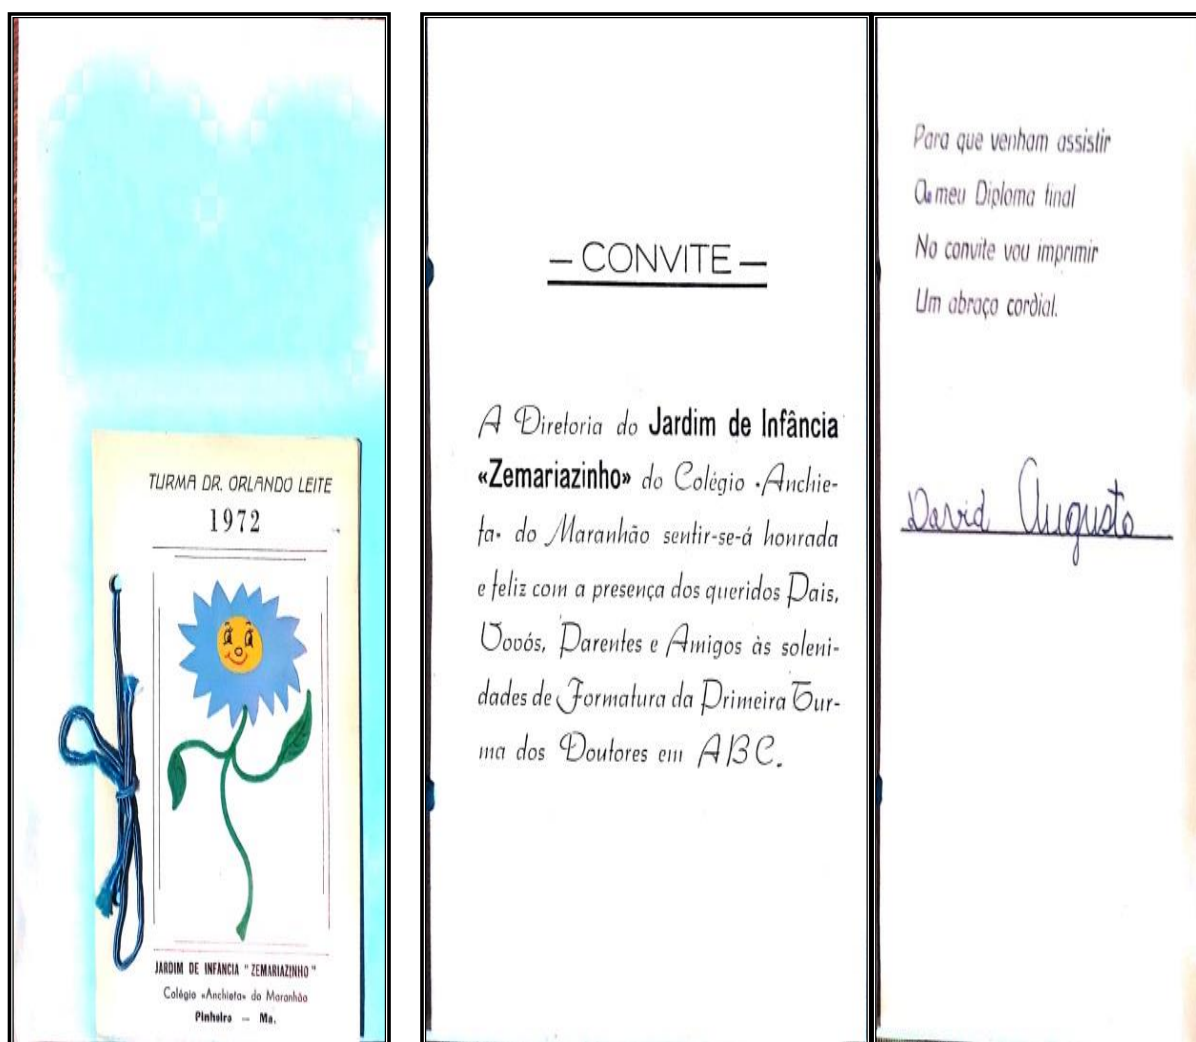 TURMA DR. ORLANDO LEITE
1972
JARDIM DE INFANCIA "ZEMARIAZINHO"
Colégio «Anchieta» do Maranhão
Pinheiro — Ma.
— CONVITE —
A Diretoria do Jardim de Infância
«Zemariazinho» do Colégio «Anchie-
ta» do Maranhão sentir-se-á honrada
e feliz com a presença dos queridos Pais,
Vovós, Parentes e Amigos às soleni-
dades de Formatura da Primeira Tur-
ma dos Doutores em ABC.
Para que venham assistir
Ao meu Diploma final
No convite vou imprimir
Um abraço cordial.
David Augusto